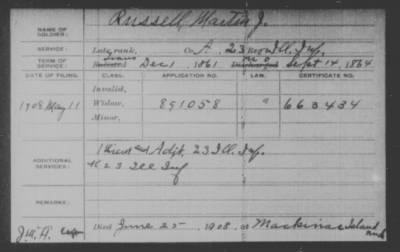 NAME OF SOLDIER: Russell, Martin J.
SERVICE: Late rank, Co. A, 23 Reg't Ill. Inf.
TERM OF SERVICE: Enlisted Dec 1, 1861 Discharged Sept 14, 1864
DATE OF FILING. CLASS. APPLICATION NO. LAW. CERTIFICATE NO.
Invalid,
1908 May 11 Widow, 891058 " 663434
Minor,
ADDITIONAL SERVICES: 1 Lieut and Adjt. 23 Ill. Inf.
23 Ill Inf
REMARKS:
Died June 25, 1908, at Mackinac Island
Mich